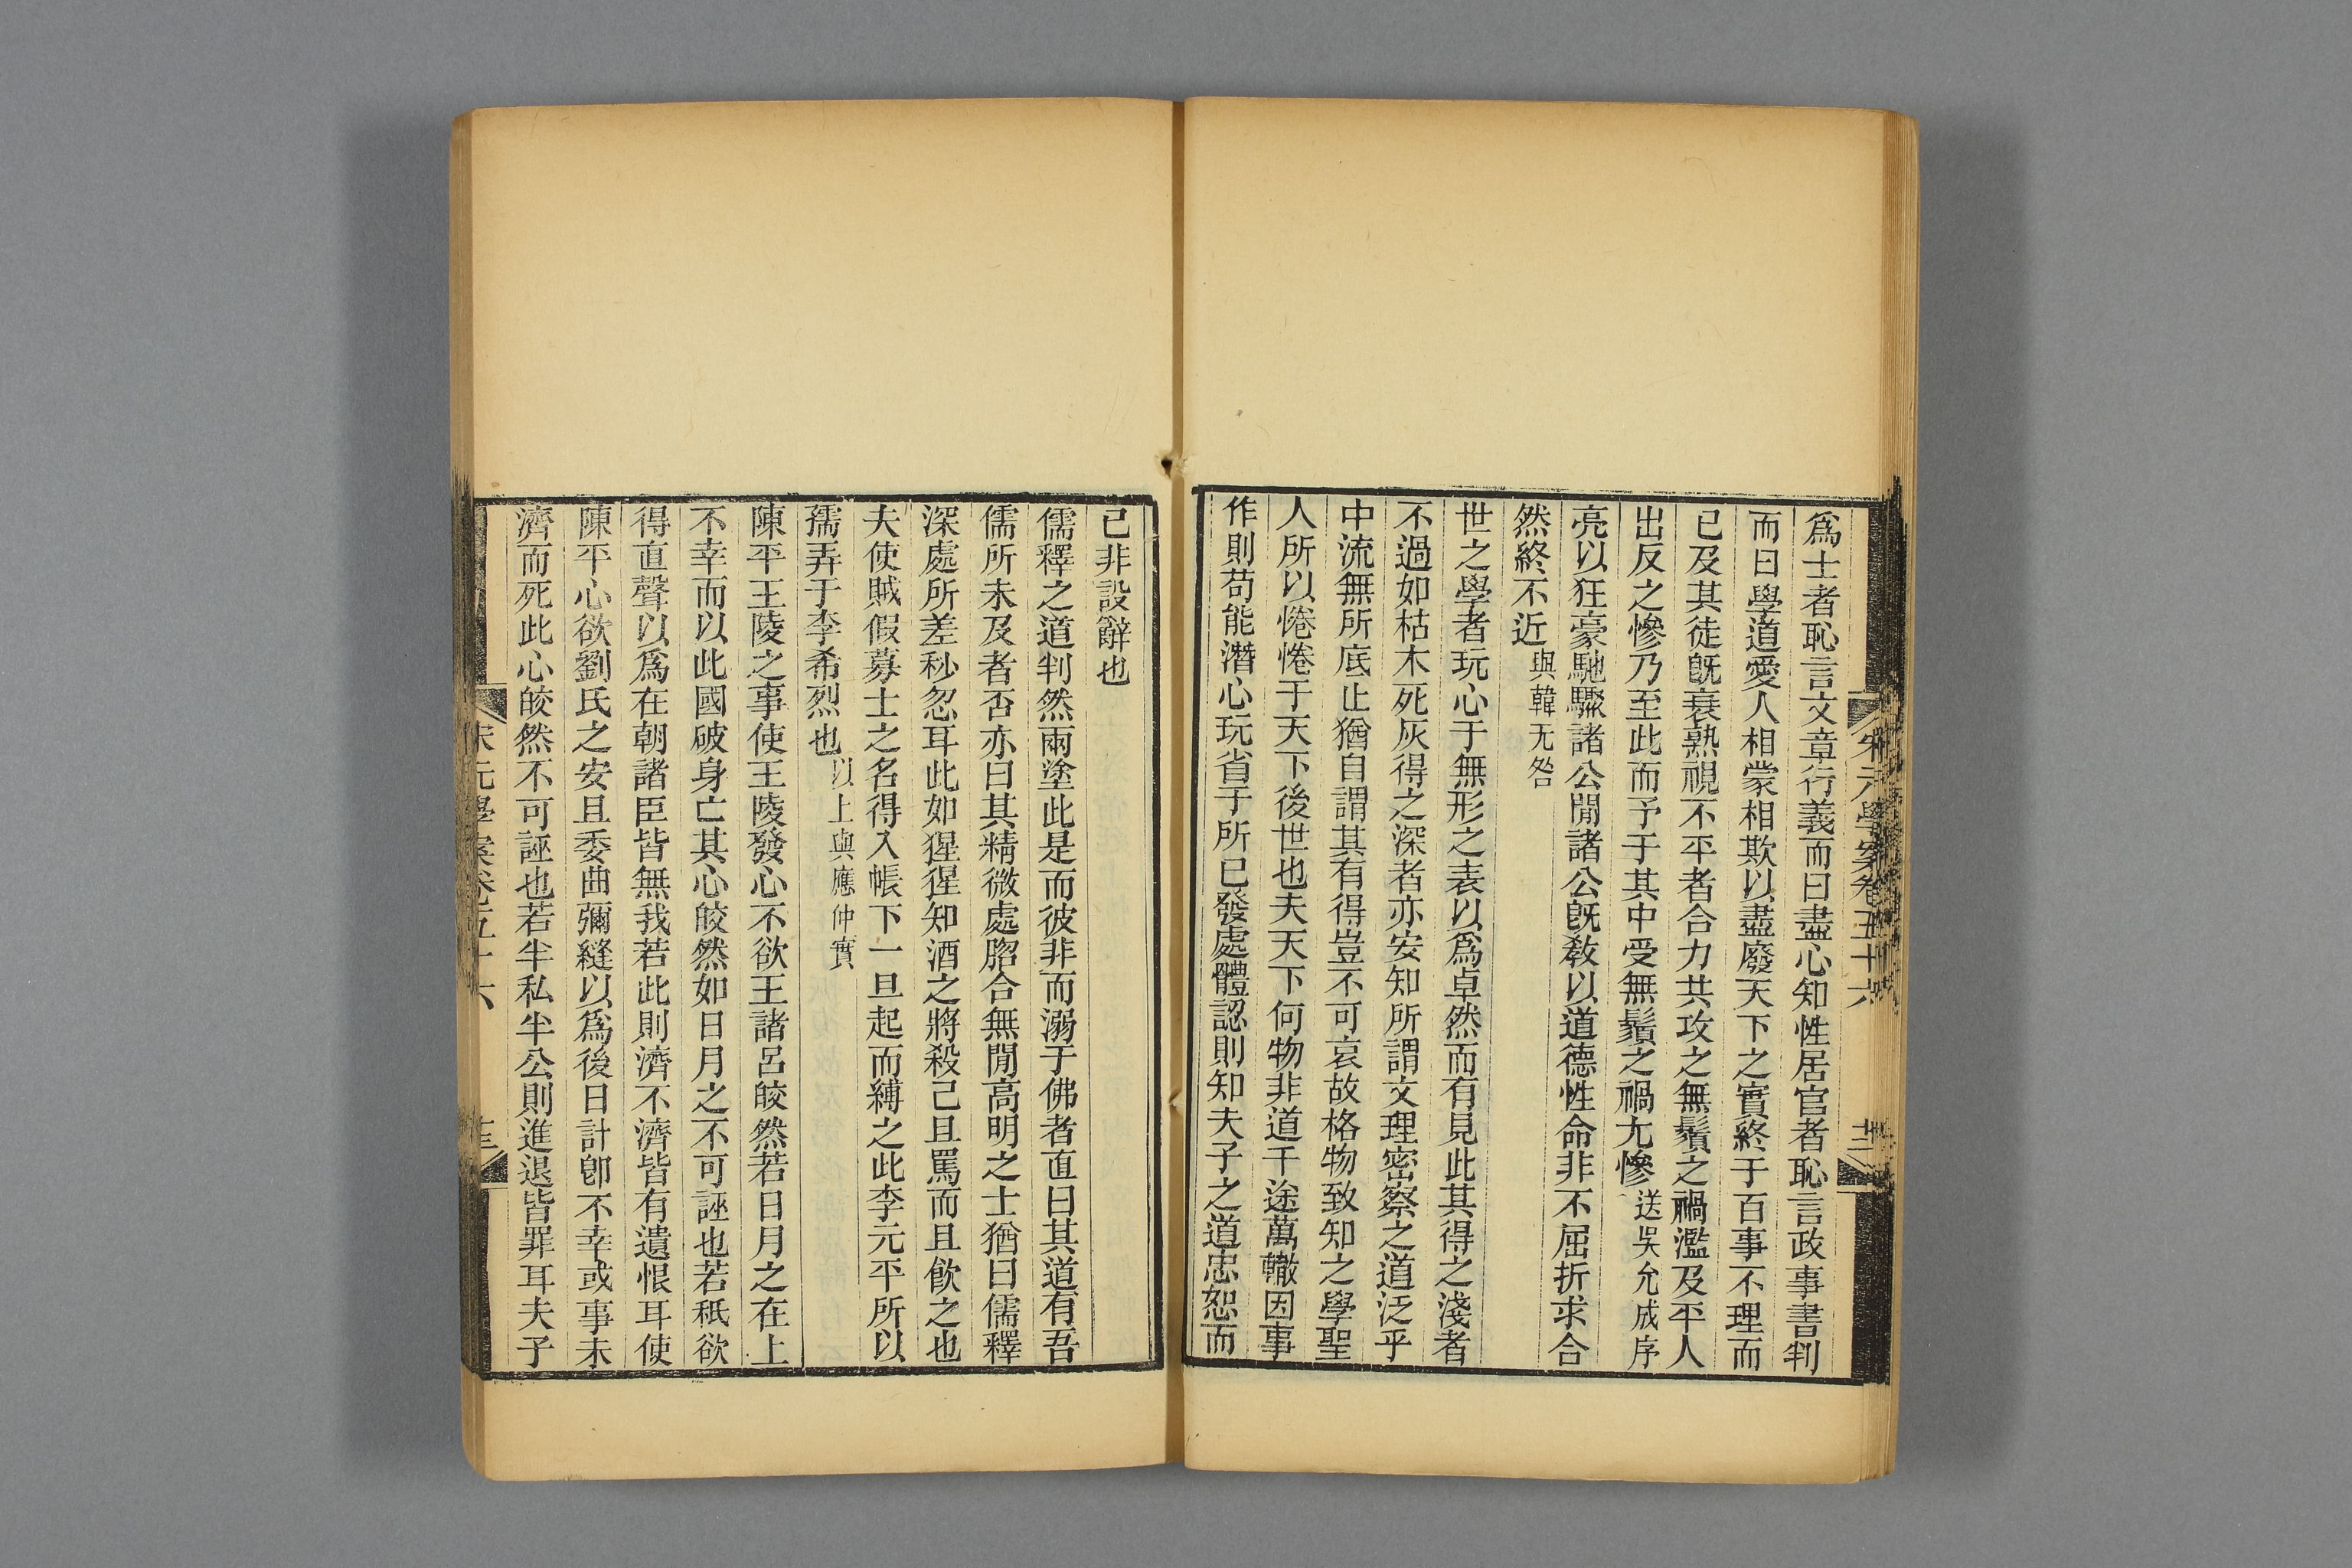 宋元學案卷五十六
爲士者恥言文章行義而曰盡心知性居官者恥言政事書判
而曰學道愛人相蒙相欺以盡廢天下之實終于百事不理而
已及其徒旣衰熟視不平者合力共攻之無鬚之禍濫及平人
出反之慘乃至此而予于其中受無鬚之禍尢慘送吳允成序
亮以狂豪馳驟諸公閒諸公旣敎以道德性命非不屈折求合
然終不近與韓无咎
世之學者玩心于無形之表以爲卓然而有見此其得之淺者
不過如枯木死灰得之深者亦安知所謂文理密察之道泛乎
中流無所底止猶自謂其有得豈不可哀故格物致知之學聖
人所以惓惓于天下後世也夫天下何物非道千途萬轍因事
作則苟能潛心玩省于所已發處體認則知夫子之道忠恕而
已非設辭也
儒釋之道判然兩塗此是而彼非而溺于佛者直曰其道有吾
儒所未及者否亦曰其精微處脗合無閒高明之士猶曰儒釋
深處所差秒忽耳此如猩猩知酒之將殺己且罵而且飲之也
夫使賊假募士之名得入帳下一旦起而縛之此李元平所以
孺弄于李希烈也以上與應仲實
陳平王陵之事使王陵發心不欲王諸呂皎然若日月之在上
不幸而以此國破身亡其心皎然如日月之不可誣也若秖欲
得直聲以爲在朝諸臣皆無我若此則濟不濟皆有遺恨耳使
陳平心欲劉氏之安且委曲彌縫以爲後日計卽不幸或事未
濟而死此心皎然不可誣也若半私半公則進退皆罪耳夫子
宋元學案卷五十六